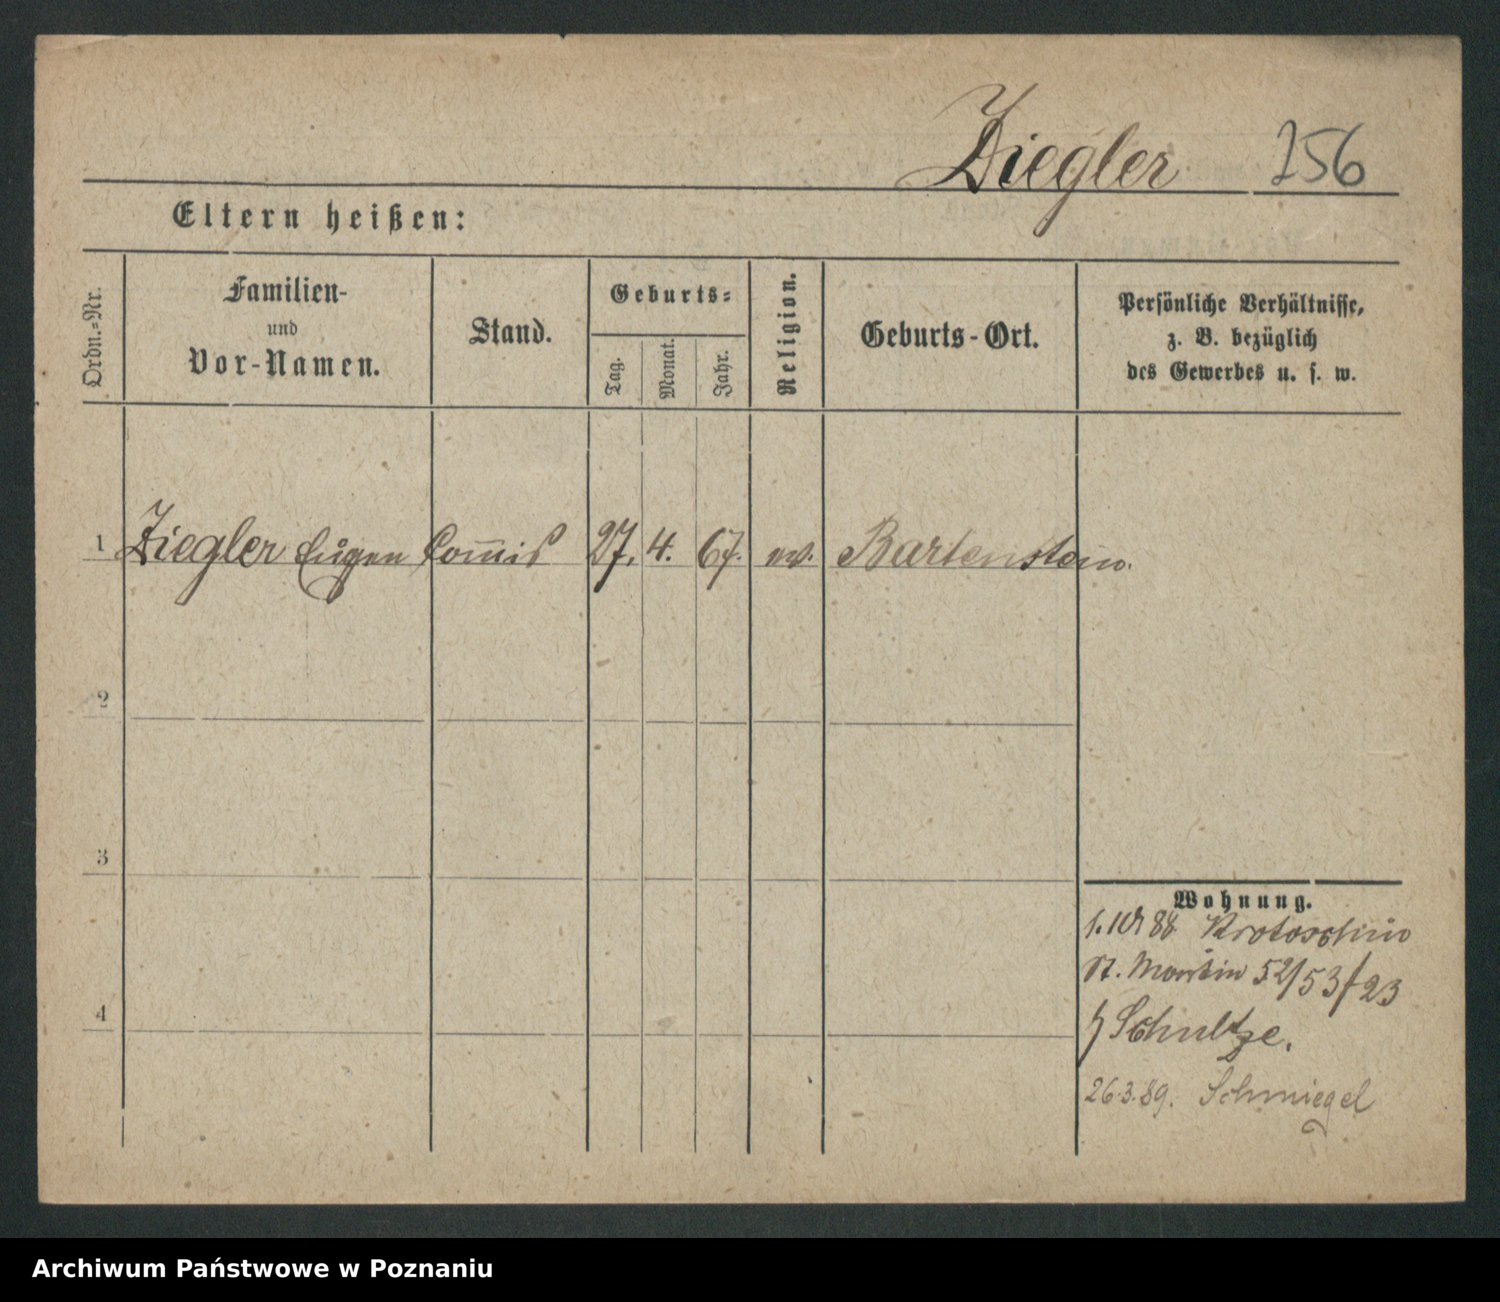 Ziegler 156
Eltern heißen:
Ordn.=Nr.
Familien-
und
Vor-Namen.
Stand.
Geburts=
Tag.
Monat.
Jahr.
Religion.
Geburts-Ort.
Persönliche Verhältnisse,
z. B. bezüglich
des Gewerbes u. s. w.
1 Ziegler Eugen Com̅is 27. 4. 67. ev. Bartenstein.
2
3
4
Wohnung.
1.10 88 Krotoschin
St. Martin 52/53 f 23
b Schultze.
26.3.89. Schmiegel
Archiwum Państwowe w Poznaniu